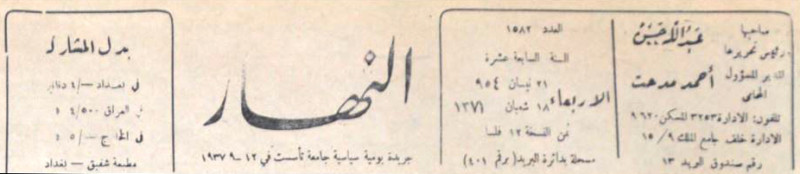 صاحبها
رئيس تحريرها
عبد الله حسن
المدير المسؤول
أحمد مدحت
المحامي
تلفون: الادارة ٣٢٥٣ المسكن ٩٦٢٠
الادارة خلف جامع الملك ٩/ ١٥
رقم صندوق البريد ١٣
العدد ١٥٨٢
السنة السابعة عشرة
الاربعاء
٢١ نيسان ٩٥٤
١٨ شعبان ١٣٧١
ثمن النسخة ١٢ فلسا
مسجلة بدائرة البريد (برقم ٤٠١)
النهار
جريدة يومية سياسية جامعة تأسست في ١٢-٩ ١٩٣٧
بدل المشاركة
في بغداد -/٤ دنانير
في العراق ٤/٥٠٠
في الخارج -/٥
مطبعة شفيق - بغداد